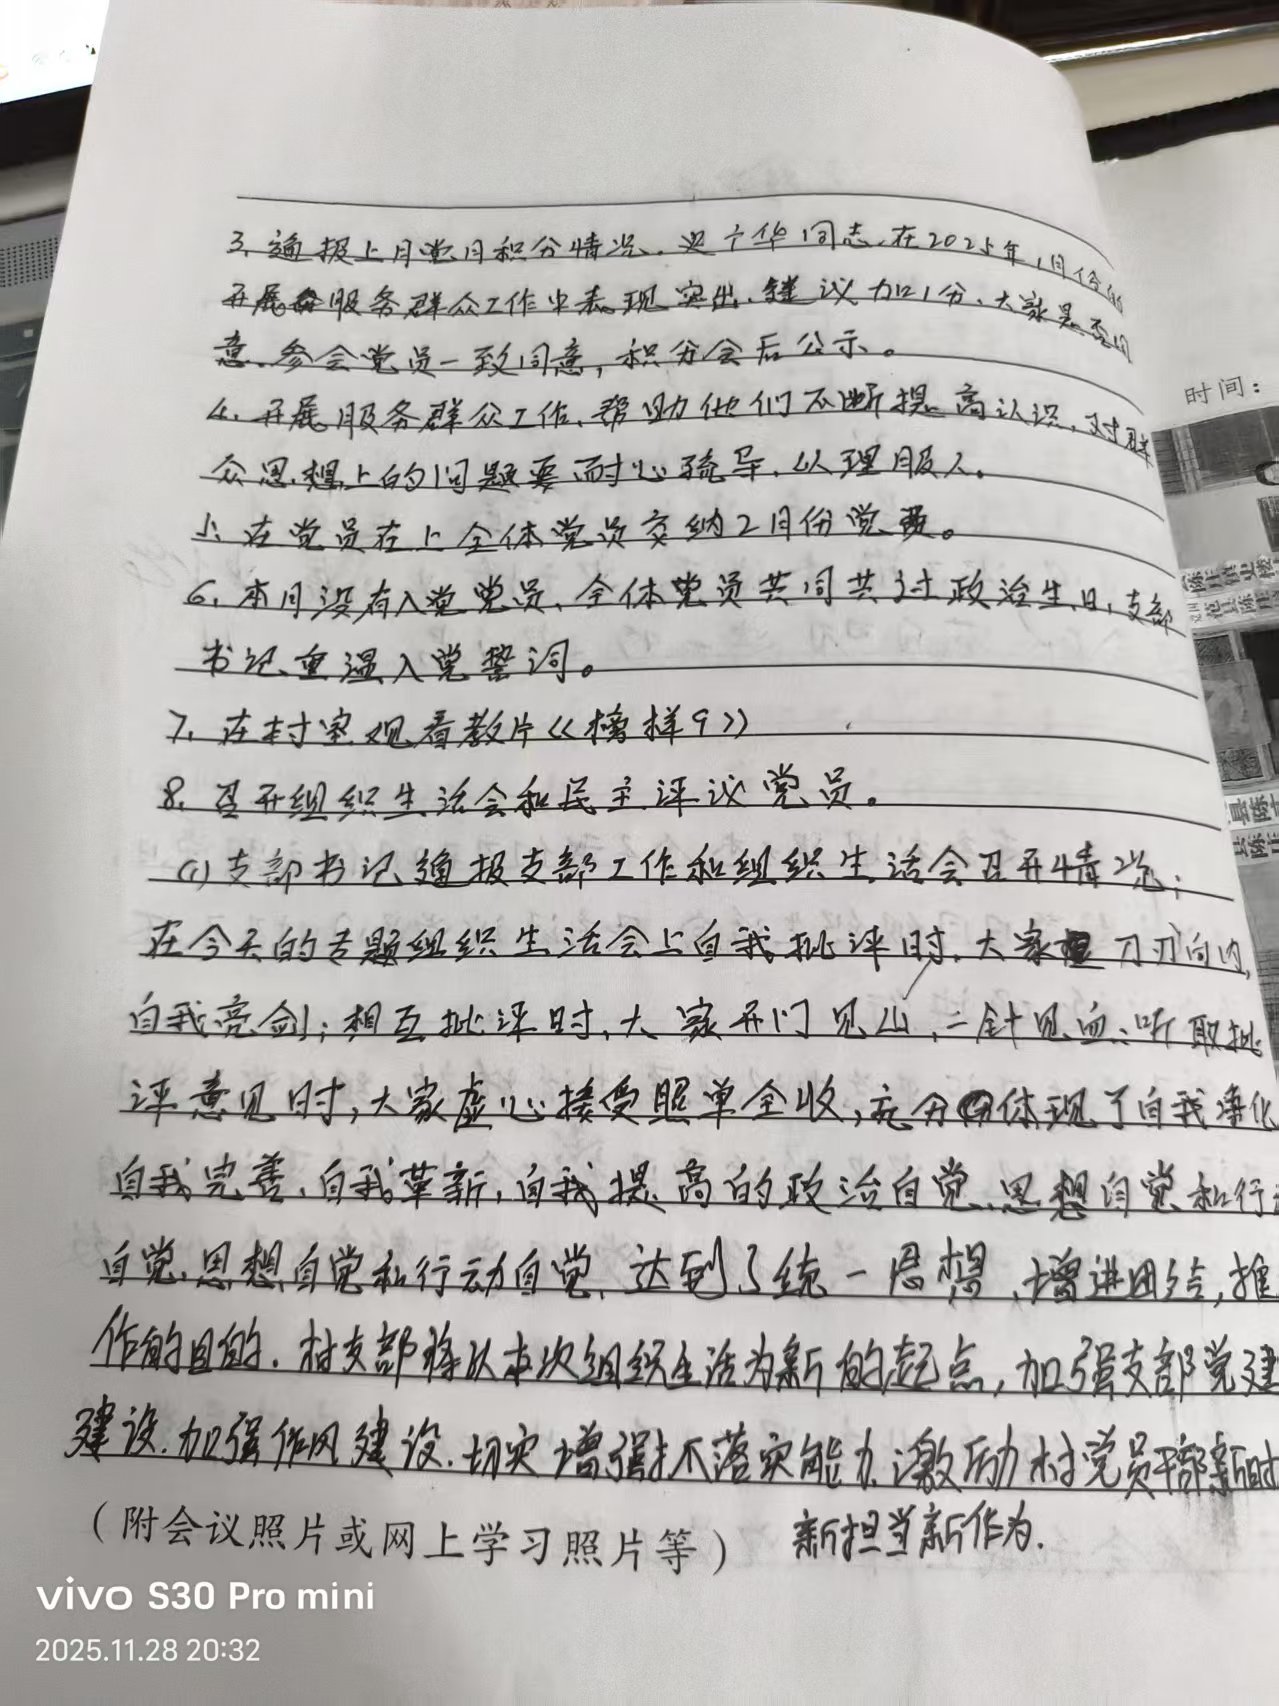 3、通报上月党员积分情况。
同志,在2025年1月份的
开展服务群众工作中表现突出,建议加1分,大家是否同
意。参会党员一致同意,积分会后公示。
4、开展服务群众工作,帮助他们不断提高认识,对群
众思想上的问题要耐心疏导,以理服人。
5、在党员在上全体党员交纳2月份党费。
6、本月没有入党党员,全体党员共同共讨政治生日,支部
书记重温入党誓词。
7、在村室观看教片《榜样9》
8、召开组织生活会和民主评议党员。
(1)支部书记通报支部工作和组织生活会召开情况;
在今天的专题组织生活会上自我批评时,大家 刀刃向内,
自我亮剑;相互批评时,大家开门见山,一针见血;听取批
评意见时,大家虚心接受照单全收,充分体现了自我净化
自我完善,自我革新,自我提高的政治自觉、思想自觉和行
自觉、思想自觉和行动自觉,达到了统一思想,增进团结,推
作的目的。村支部将从本次组织生活为新的起点,加强支部党建
建设,加强作风建设,切实增强抓落实能力,激励村党员干部新时
(附会议照片或网上学习照片等) 新担当新作为.
时间:
vivo S30 Pro mini
2025.11.28 20:32